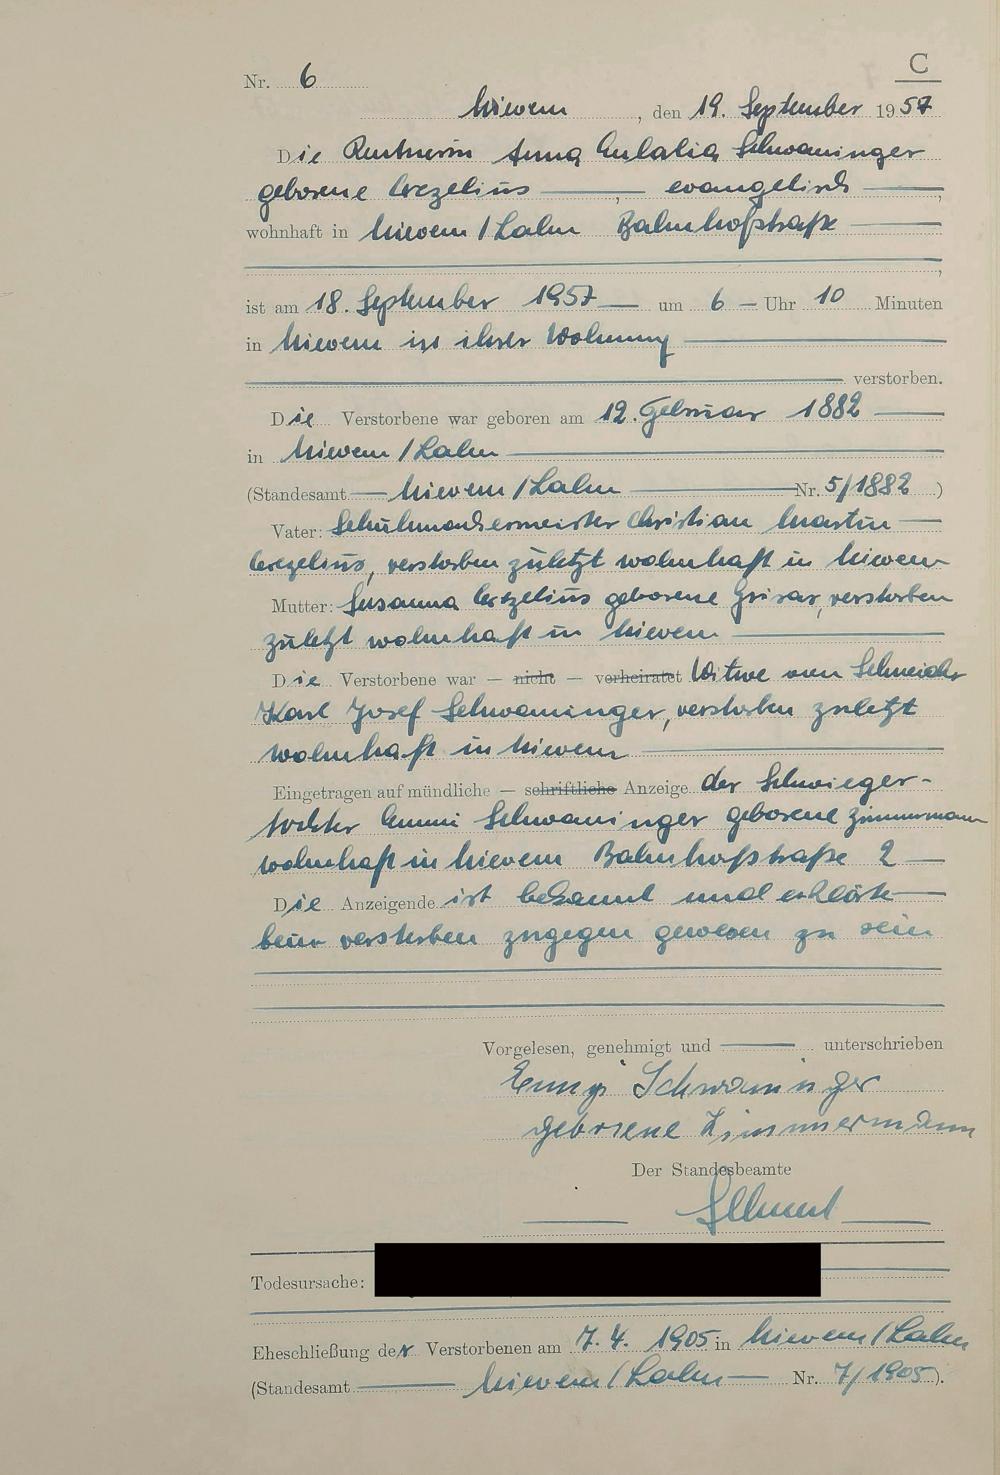 C
Nr. 6
Nievern, den 19. September 1957
Die Rentnerin Anna Eulalia Schwaninger
geborene Crezelius, evangelisch,
wohnhaft in Nievern/Lahn Bahnhofstraße
,
ist am 18. September 1957 um 6 Uhr 10 Minuten
in Nievern in ihrer Wohnung
verstorben.
Die Verstorbene war geboren am 12. Februar 1882
in Nievern/Lahn
(Standesamt Nievern/Lahn Nr. 5/1882)
Vater: Schuhmachermeister Christian Martin
Crezelius, verstorben zuletzt wohnhaft in Nievern
Mutter: Susanna Crezelius geborene Grisar, verstorben
zuletzt wohnhaft in Nievern
Die Verstorbene war — nicht — verheiratet Witwe von Schneider
Karl Josef Schwaninger, verstorben zuletzt
wohnhaft in Nievern
Eingetragen auf mündliche — schriftliche Anzeige der Schwieger-
tochter Emmi Schwaninger geborene Zimmermann
wohnhaft in Nievern Bahnhofstraße 2
Die Anzeigende ist bekannt und erklärte
beim versterben zugegen gewesen zu sein
Vorgelesen, genehmigt und unterschrieben
Emmy Schwaninger
geborene Zimmermann
Der Standesbeamte
Todesursache:
Eheschließung der Verstorbenen am 7.4.1905 in Nievern/Lahn
(Standesamt Nievern/Lahn Nr. 7/1905).